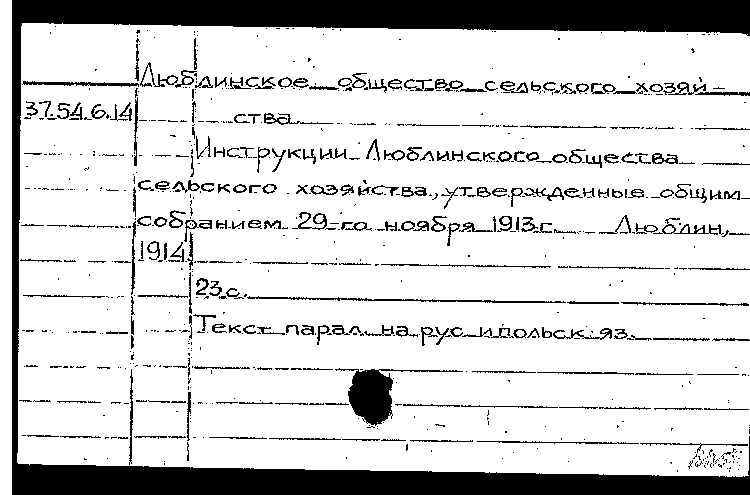 Люблинское общество сельского хозяй-
37.54.6.14 ства.
Инструкции Люблинского общества
сельского хозяйства, утвержденные общим
собранием 29-го ноября 1913г. Люблин,
1914.
23с.
Текст парал. на рус и польск. яз.